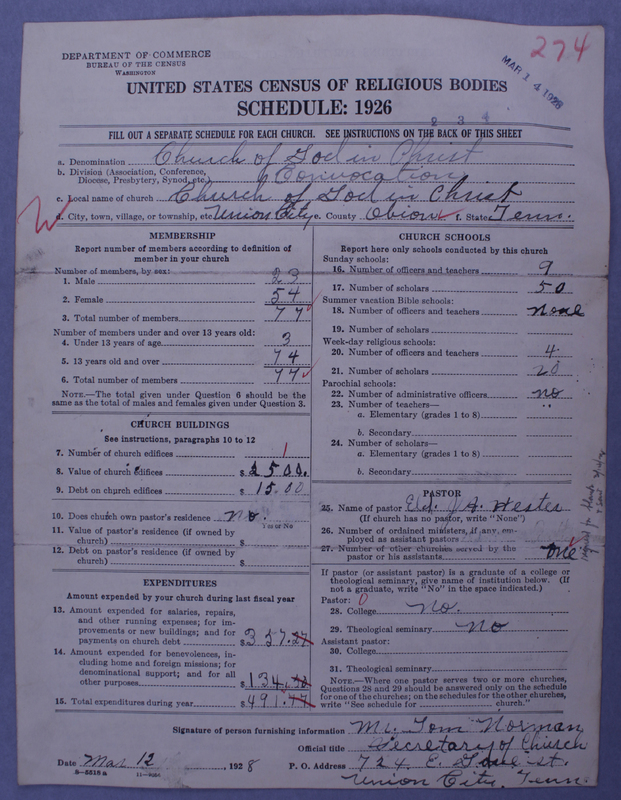 274
MAR 14 1928
DEPARTMENT OF COMMERCE
BUREAU OF THE CENSUS
WASHINGTON
UNITED STATES CENSUS OF RELIGIOUS BODIES
SCHEDULE: 1926
2 3 4
FILL OUT A SEPARATE SCHEDULE FOR EACH CHURCH. SEE INSTRUCTIONS ON THE BACK OF THIS SHEET
a. Denomination Church of God in Christ
b. Division (Association, Conference, Diocese, Presbytery, Synod, etc.) Convocation
c. Local name of church Church of God in Christ
d. City, town, village, or township, etc. Union City e. County Obion f. State Tenn.
MEMBERSHIP
Report number of members according to definition of member in your church
Number of members, by sex:
1. Male 23
2. Female 54
3. Total number of members 77
Number of members under and over 13 years old:
4. Under 13 years of age 3
5. 13 years old and over 74
6. Total number of members 77
NOTE.—The total given under Question 6 should be the same as the total of males and females given under Question 3.
CHURCH BUILDINGS
See instructions, paragraphs 10 to 12
7. Number of church edifices 1
8. Value of church edifices $ 2500.
9. Debt on church edifices $ 15.00
10. Does church own pastor's residence no.
Yes or No
11. Value of pastor's residence (if owned by church) $
12. Debt on pastor's residence (if owned by church) $
EXPENDITURES
Amount expended by your church during last fiscal year
13. Amount expended for salaries, repairs, and other running expenses; for improvements or new buildings; and for payments on church debt $ 357.27
14. Amount expended for benevolences, including home and foreign missions; for denominational support; and for all other purposes $ 134.
15. Total expenditures during year $ 491.77
CHURCH SCHOOLS
Report here only schools conducted by this church
Sunday schools:
16. Number of officers and teachers 9
17. Number of scholars 50
Summer vacation Bible schools:
18. Number of officers and teachers none
19. Number of scholars
Week-day religious schools:
20. Number of officers and teachers 4
21. Number of scholars 20
Parochial schools:
22. Number of administrative officers no
23. Number of teachers— "
a. Elementary (grades 1 to 8)
b. Secondary
24. Number of scholars—
a. Elementary (grades 1 to 8)
b. Secondary
PASTOR
25. Name of pastor Eld. J. A. Wester
(If church has no pastor, write "None")
26. Number of ordained ministers, if any, employed as assistant pastors
27. Number of other churches served by the pastor or his assistants one
If pastor (or assistant pastor) is a graduate of a college or theological seminary, give name of institution below. (If not a graduate, write "No" in the space indicated.)
Pastor: 0
28. College no.
29. Theological seminary no
Assistant pastor:
30. College
31. Theological seminary
NOTE.—Where one pastor serves two or more churches, Questions 28 and 29 should be answered only on the schedule for one of the churches; on the schedules for the other churches, write "See schedule for church."
Signature of person furnishing information Mr. Tom Norman
Official title Secretary of Church
Date Mar 12, 1928 P. O. Address 724 E. St.
Union City, Tenn.
8-5518a 11-9064